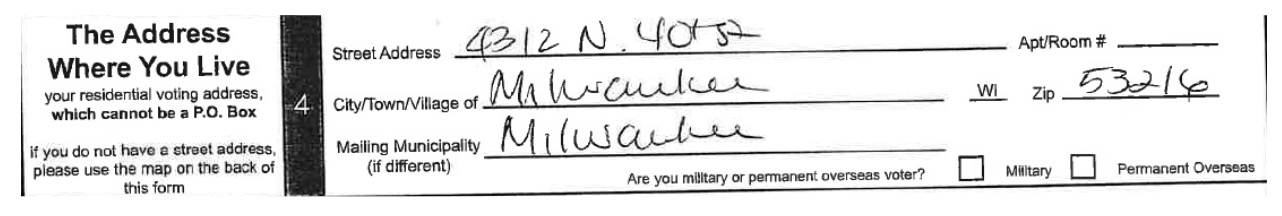 The Address
Where You Live
your residential voting address,
which cannot be a P.O. Box
if you do not have a street address,
please use the map on the back of
this form
4
Street Address 4312 N. 40th St Apt/Room #
City/Town/Village of Milwaukee WI Zip 53216
Mailing Municipality Milwaukee
(if different)
Are you military or permanent overseas voter? Military Permanent Overseas